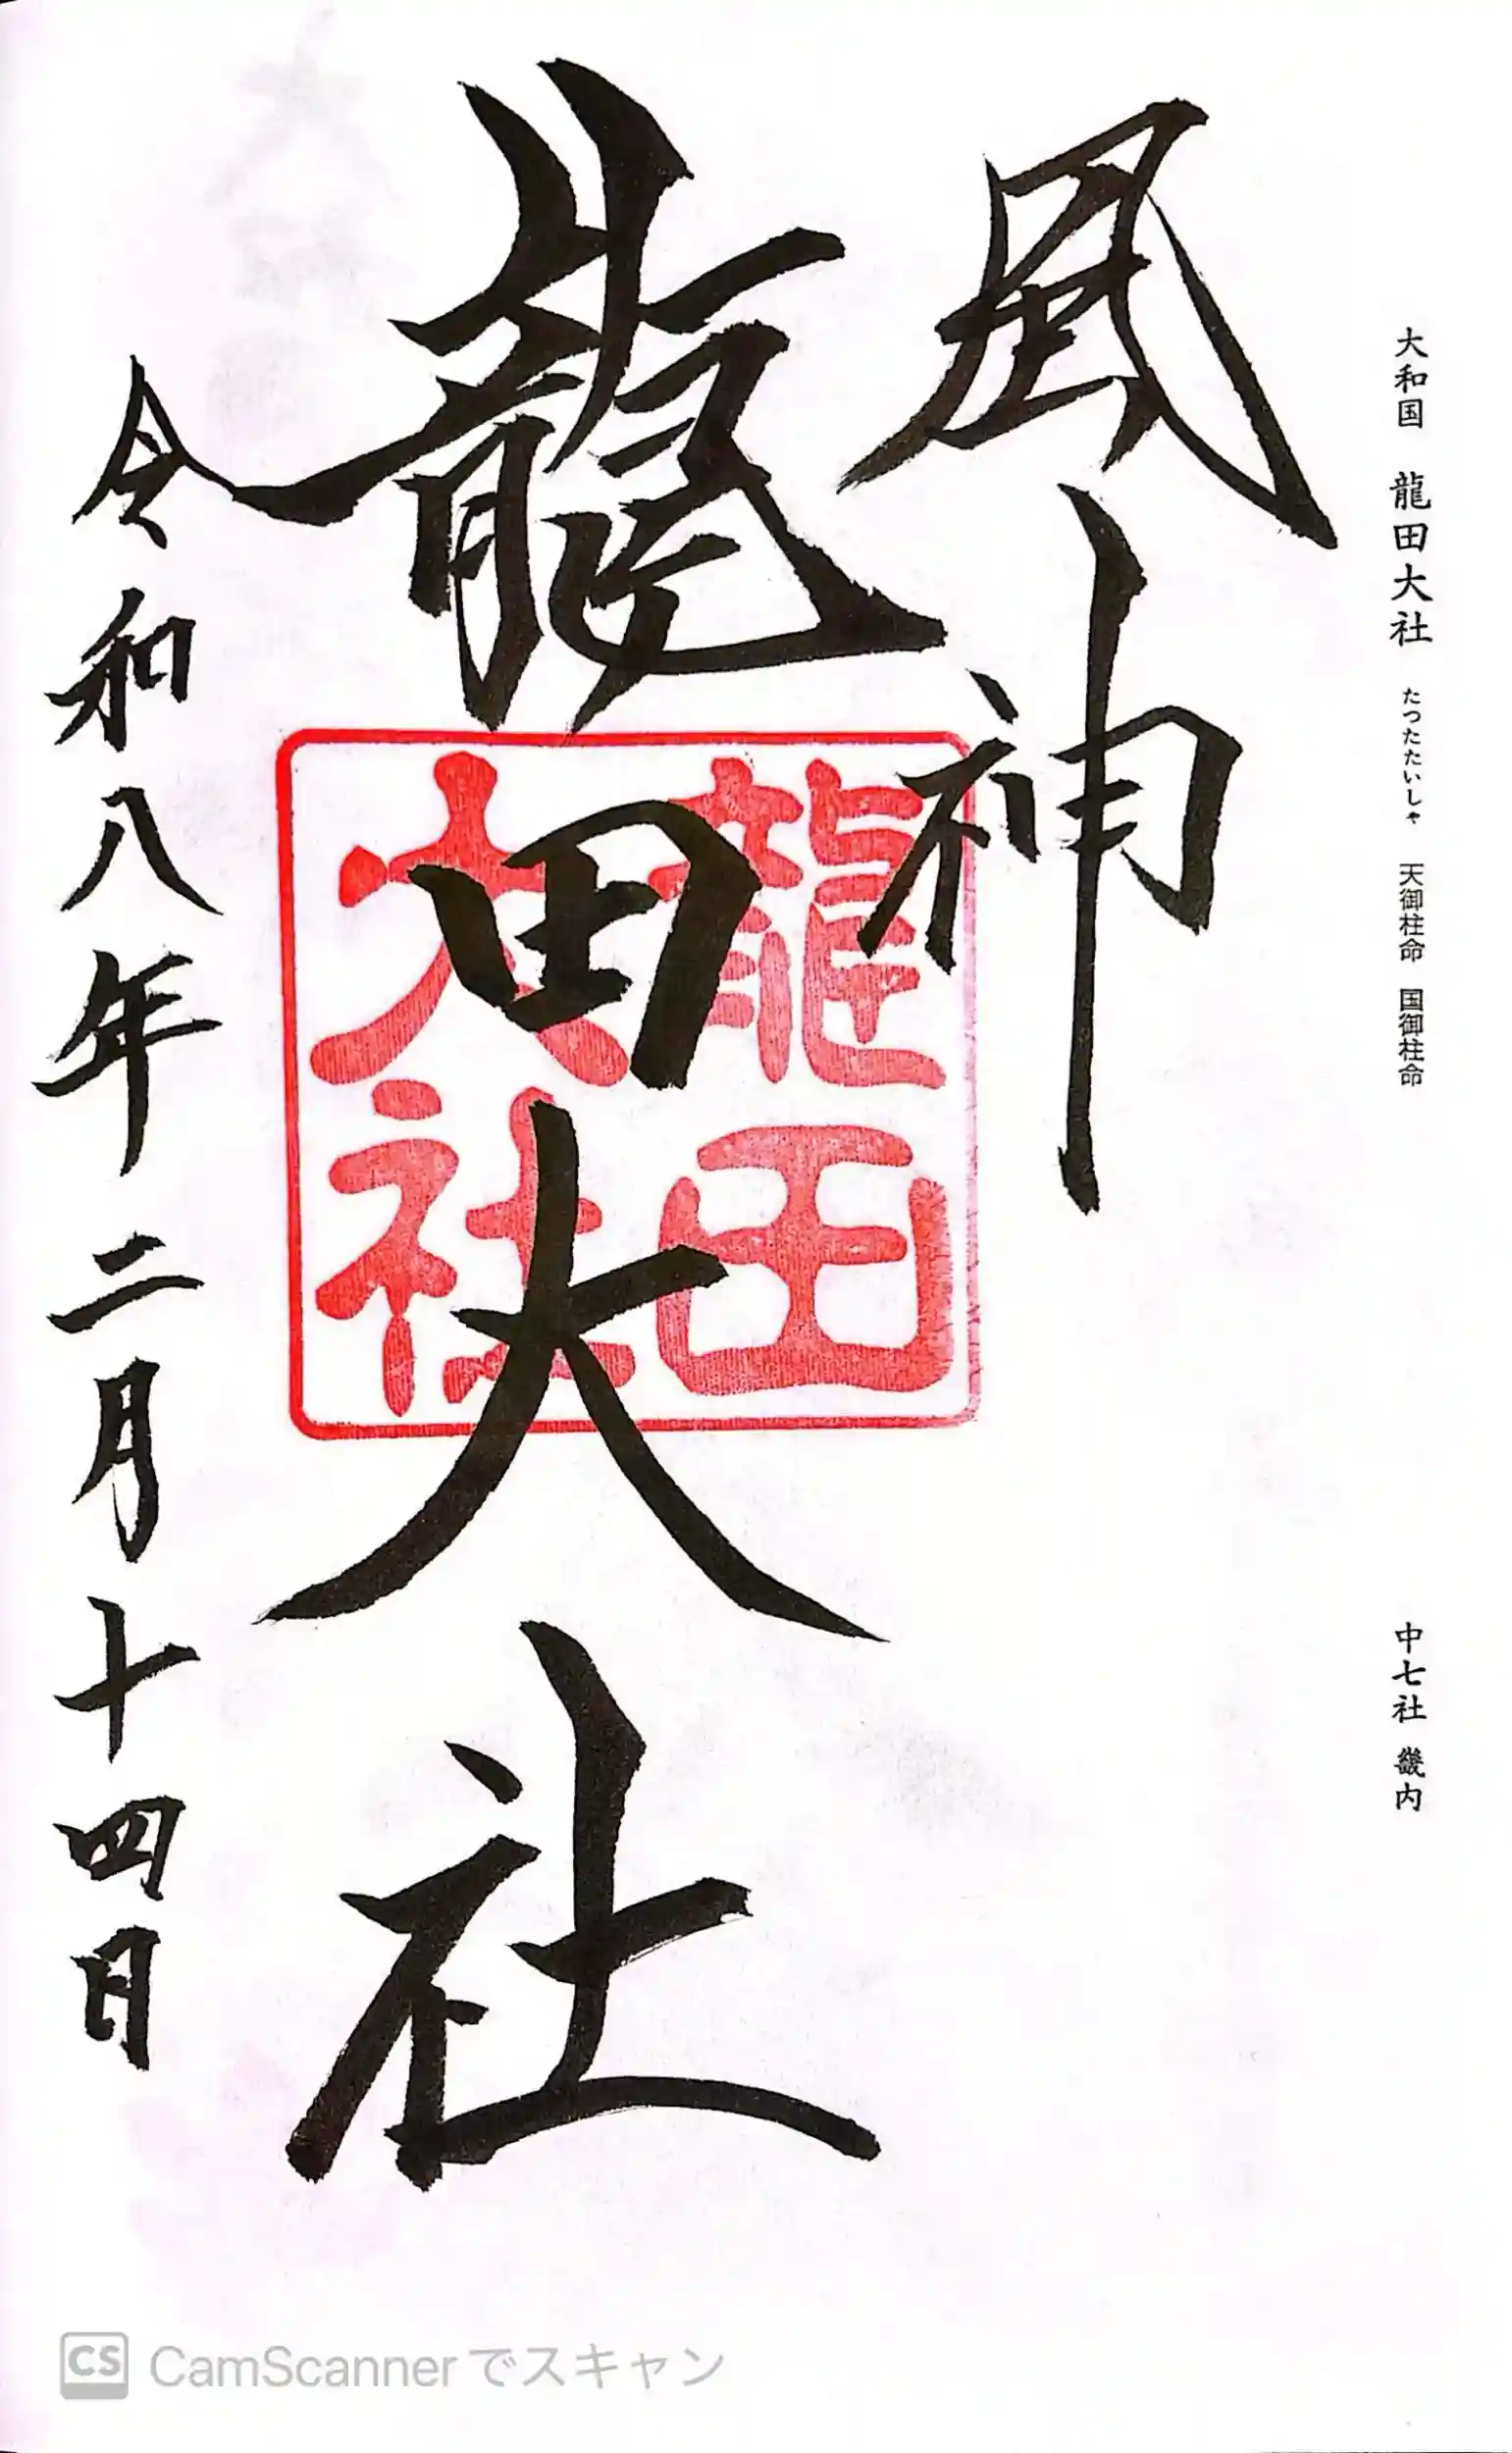 大和国 龍田大社 たつたたいしゃ 天御柱命 国御柱命
中七社 畿内
風神
龍田大社
龍田
大社
令和八年二月十四日
CS CamScannerでスキャン